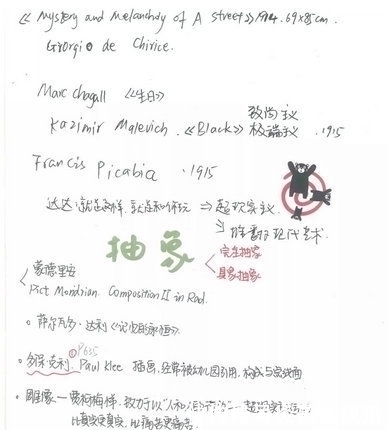 《Mystery and Melancholy of A street》1914. 69×85cm.
Giorgio de Chirico.
Marc chagall 《生日》
至尚主义
Kazimir Malevich.《Black》极端主义 .1915
Francis Picabia .1915
达达:就是这样,就是和你玩 ⇒ 超现实主义.
现代艺术.
抽象
完全抽象
具象抽象
蒙德里安
Piet Mondrian. Composition II in Red.
萨尔瓦多·达利《记忆的永恒》.
P635
保罗克利. Paul Klee 插画,经常被幼儿园引用,构成与完线面
雕像—贾柯梅蒂,
比真实更真实,比痛苦更痛苦.